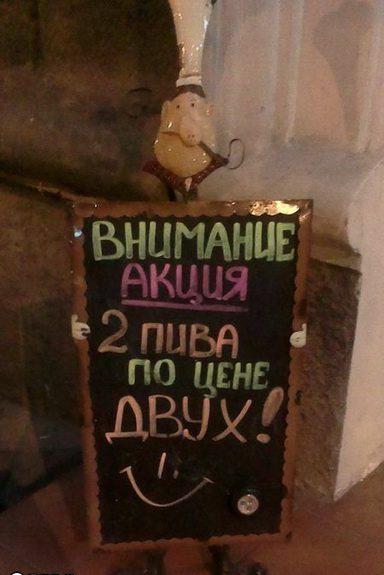 ВНИМАНИЕ
АКЦИЯ
2 ПИВА
ПО ЦЕНЕ
ДВУХ!